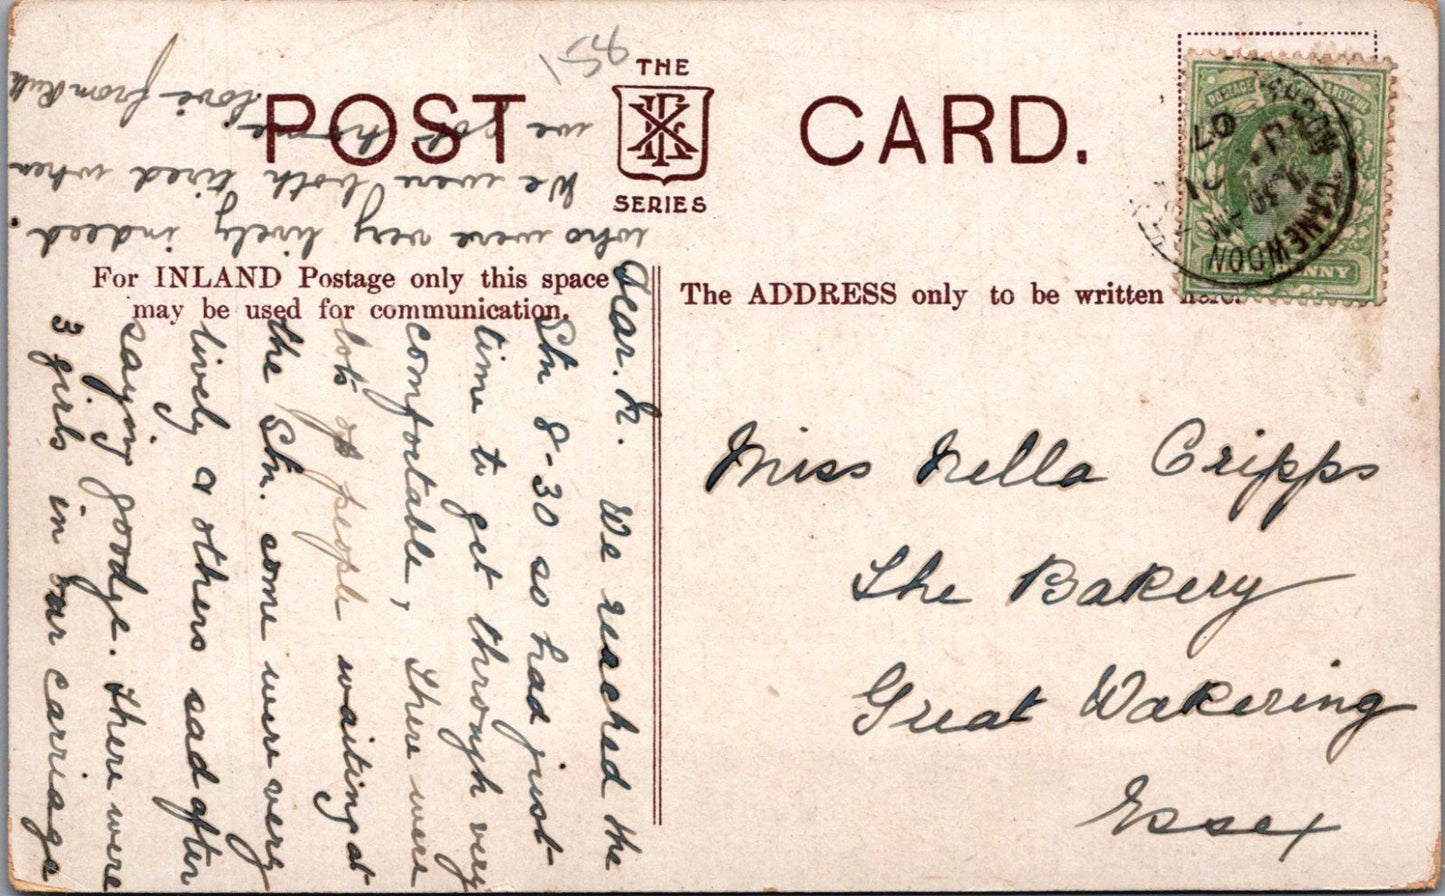 POST CARD.
THE
SERIES
158
For INLAND Postage only this space
may be used for communication.
The ADDRESS only to be written here.
Dear. N. We reached the
Stn 8-30 so had just
time to get through very
comfortable, There were
lots of people waiting at
the Stn. some were very
lively & others sad after
saying goodge. There were
3 girls in our carriage
who were very lively indeed.
We were both tired when
we got home.
love from Ruth
Miss Nella Cripps
The Bakery
Great Wakering
Essex
POSTAGE REVENUE
HALF PENNY
CANEWDON
07